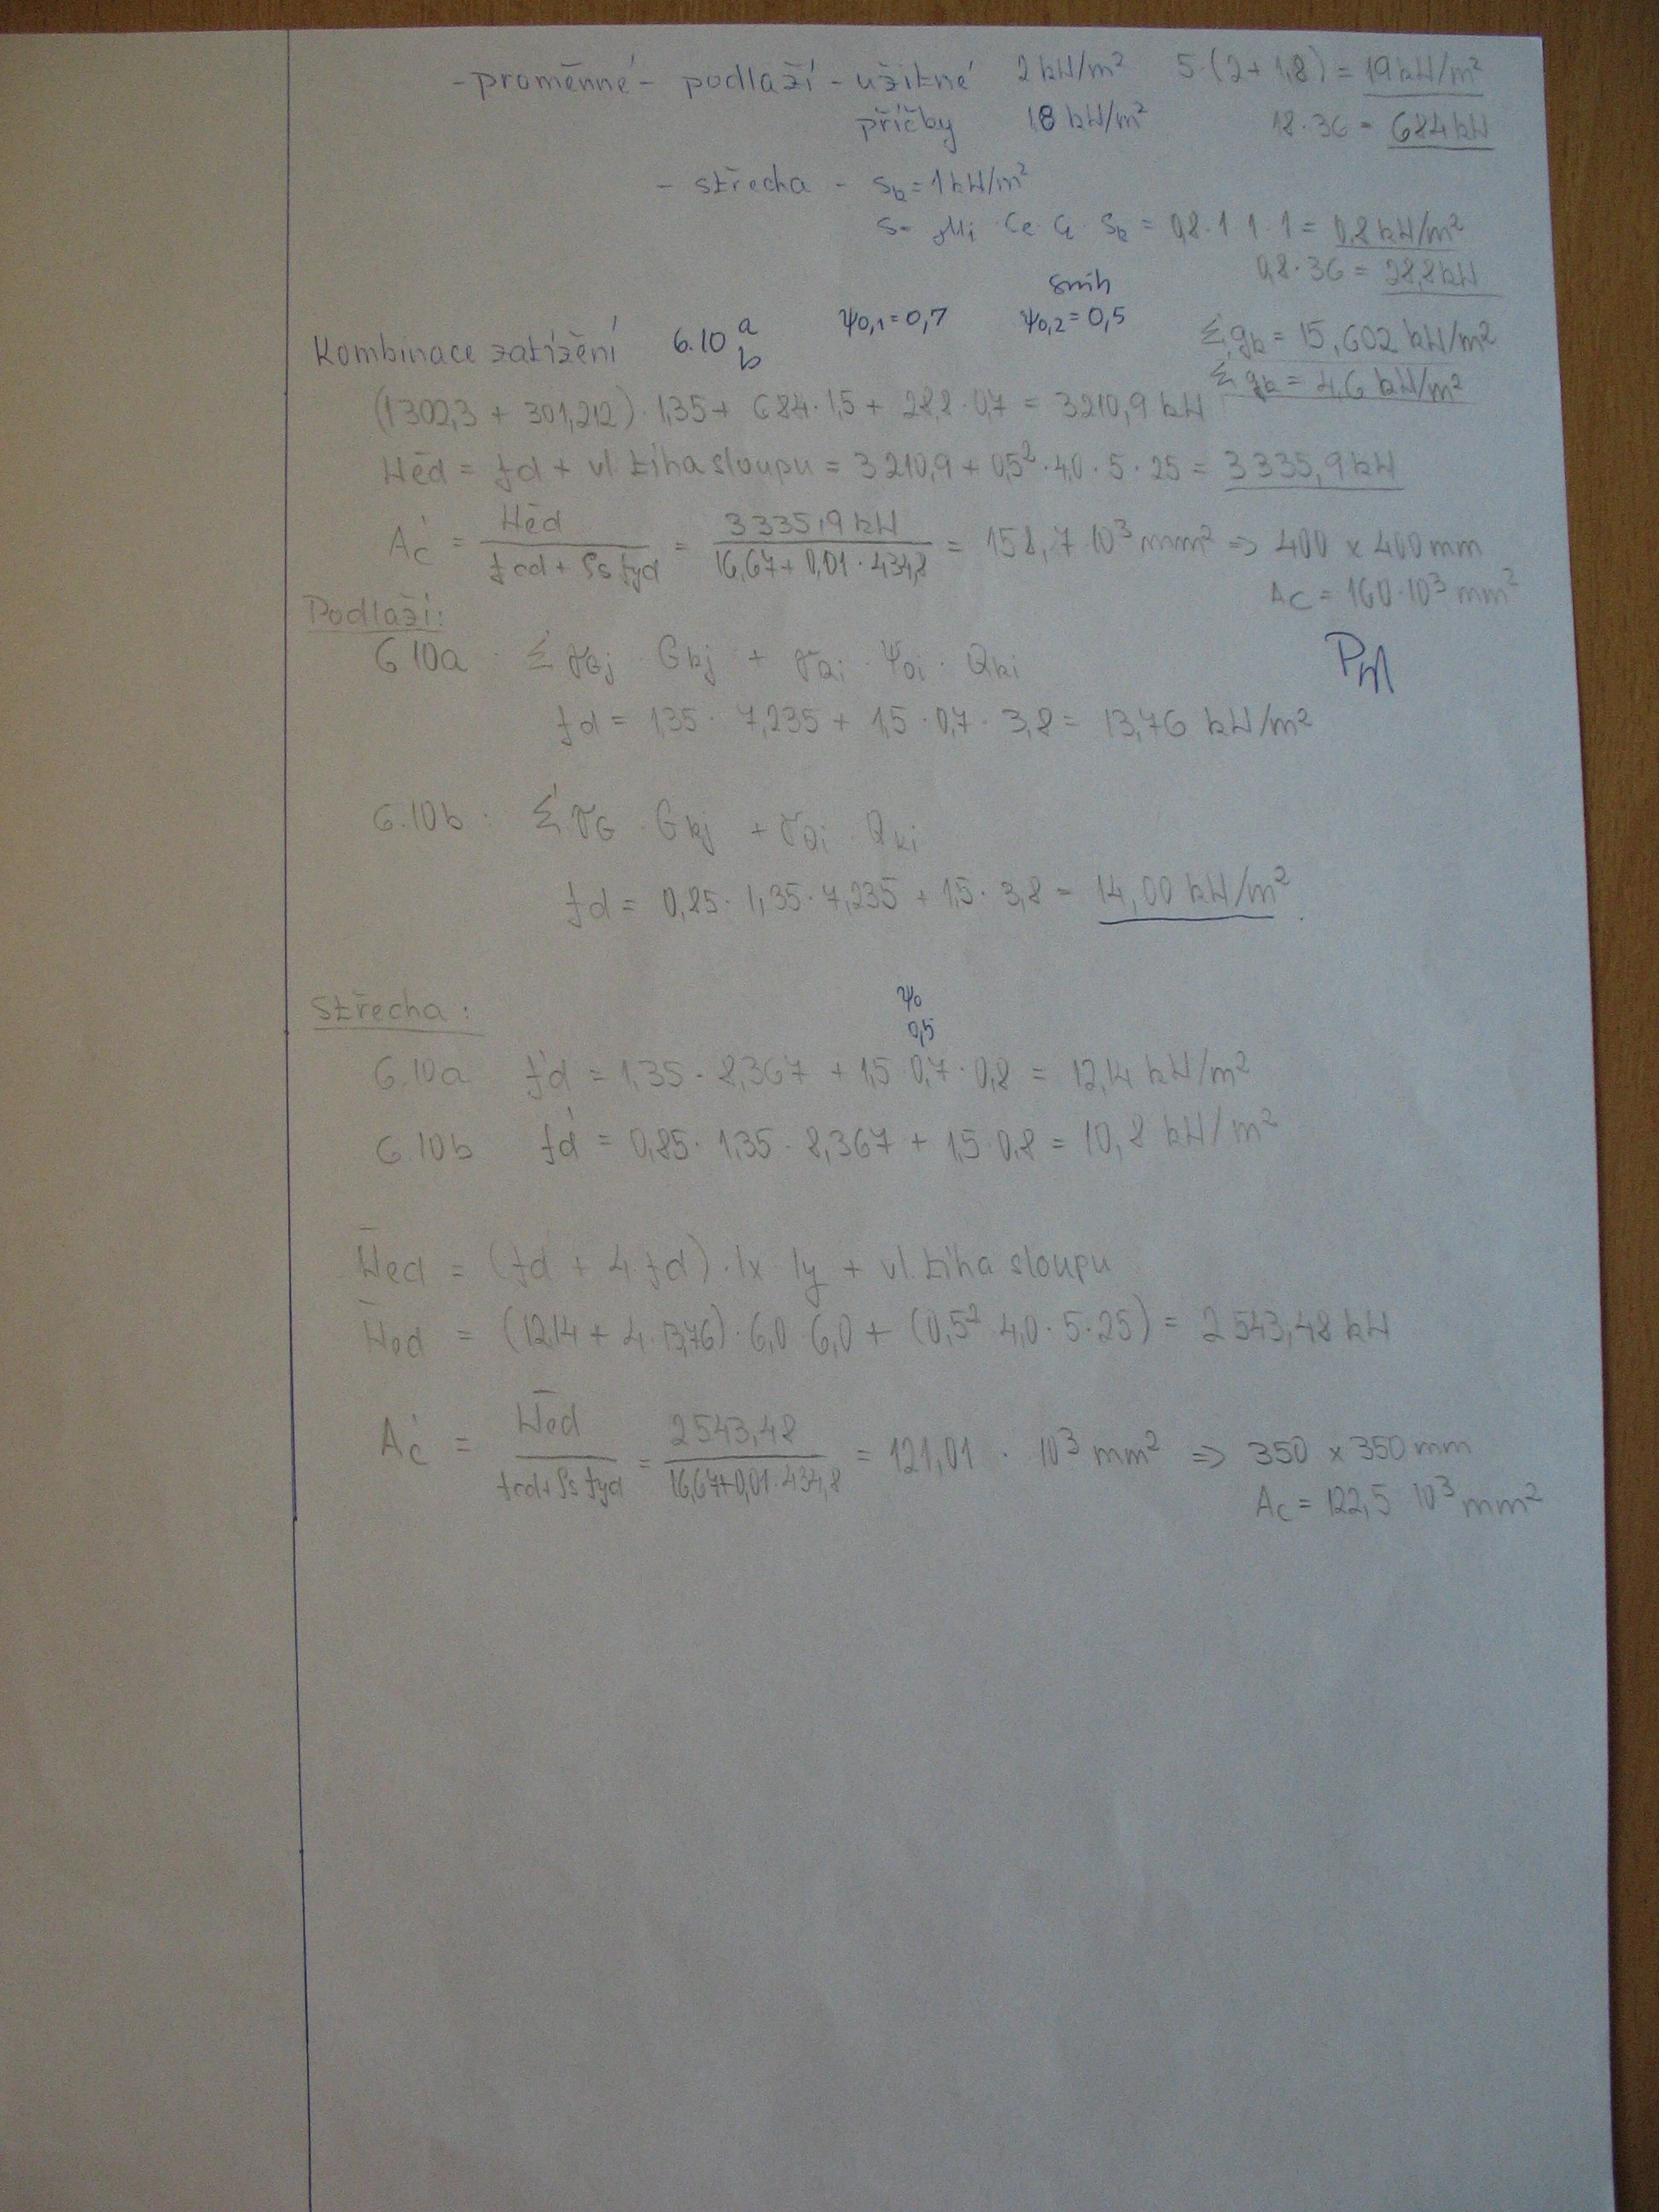 - proměnné - podlaží - užitné 2 kN/m² 5·(2+1,8) = 19 kN/m²
příčky 1,8 kN/m² 18·36 = 684 kN
- střecha - sk = 1 kN/m²
s = μi · Ce · Ct · sk = 0,8·1·1·1 = 0,8 kN/m²
0,8·36 = 28,8 kN
sníh
Kombinace zatížení 6.10 a b ψ0,1 = 0,7 ψ0,2 = 0,5 Σ gk = 15,602 kN/m²
Σ qk = 4,6 kN/m²
(1302,3 + 301,212)·1,35 + 684·1,5 + 28,8·0,7 = 3210,9 kN
Ned = fd + vl. tíha sloupu = 3210,9 + 0,5²·4,0·5·25 = 3335,9 kN
Ac = Ned / fcd + ρs fyd = 3335,9 kN / 16,67 + 0,01·434,8 = 158,7·10³ mm² => 400 x 400 mm
Ac = 160·10³ mm²
Podlaží:
6.10a : Σ γGj · Gkj + γQi · ψ0i · Qki
fd = 1,35 · 7,235 + 1,5 · 0,7 · 3,8 = 13,76 kN/m²
6.10b : Σ γG · Gkj + γQi · Qki
fd = 0,85 · 1,35 · 7,235 + 1,5 · 3,8 = 14,00 kN/m²
Střecha:
ψ0
0,5
6.10a fd = 1,35 · 8,367 + 1,5 · 0,7 · 0,8 = 12,14 kN/m²
6.10b fd = 0,85 · 1,35 · 8,367 + 1,5 · 0,8 = 10,8 kN/m²
Ned = (fd + 4·fd) · lx · ly + vl. tíha sloupu
Ned = (12,14 + 4·13,76) · 6,0 · 6,0 + (0,5² · 4,0 · 5 · 25) = 2543,48 kN
Ac = Ned / fcd + ρs fyd = 2543,48 / 16,67 + 0,01·434,8 = 121,01 · 10³ mm² => 350 x 350 mm
Ac = 122,5 · 10³ mm²